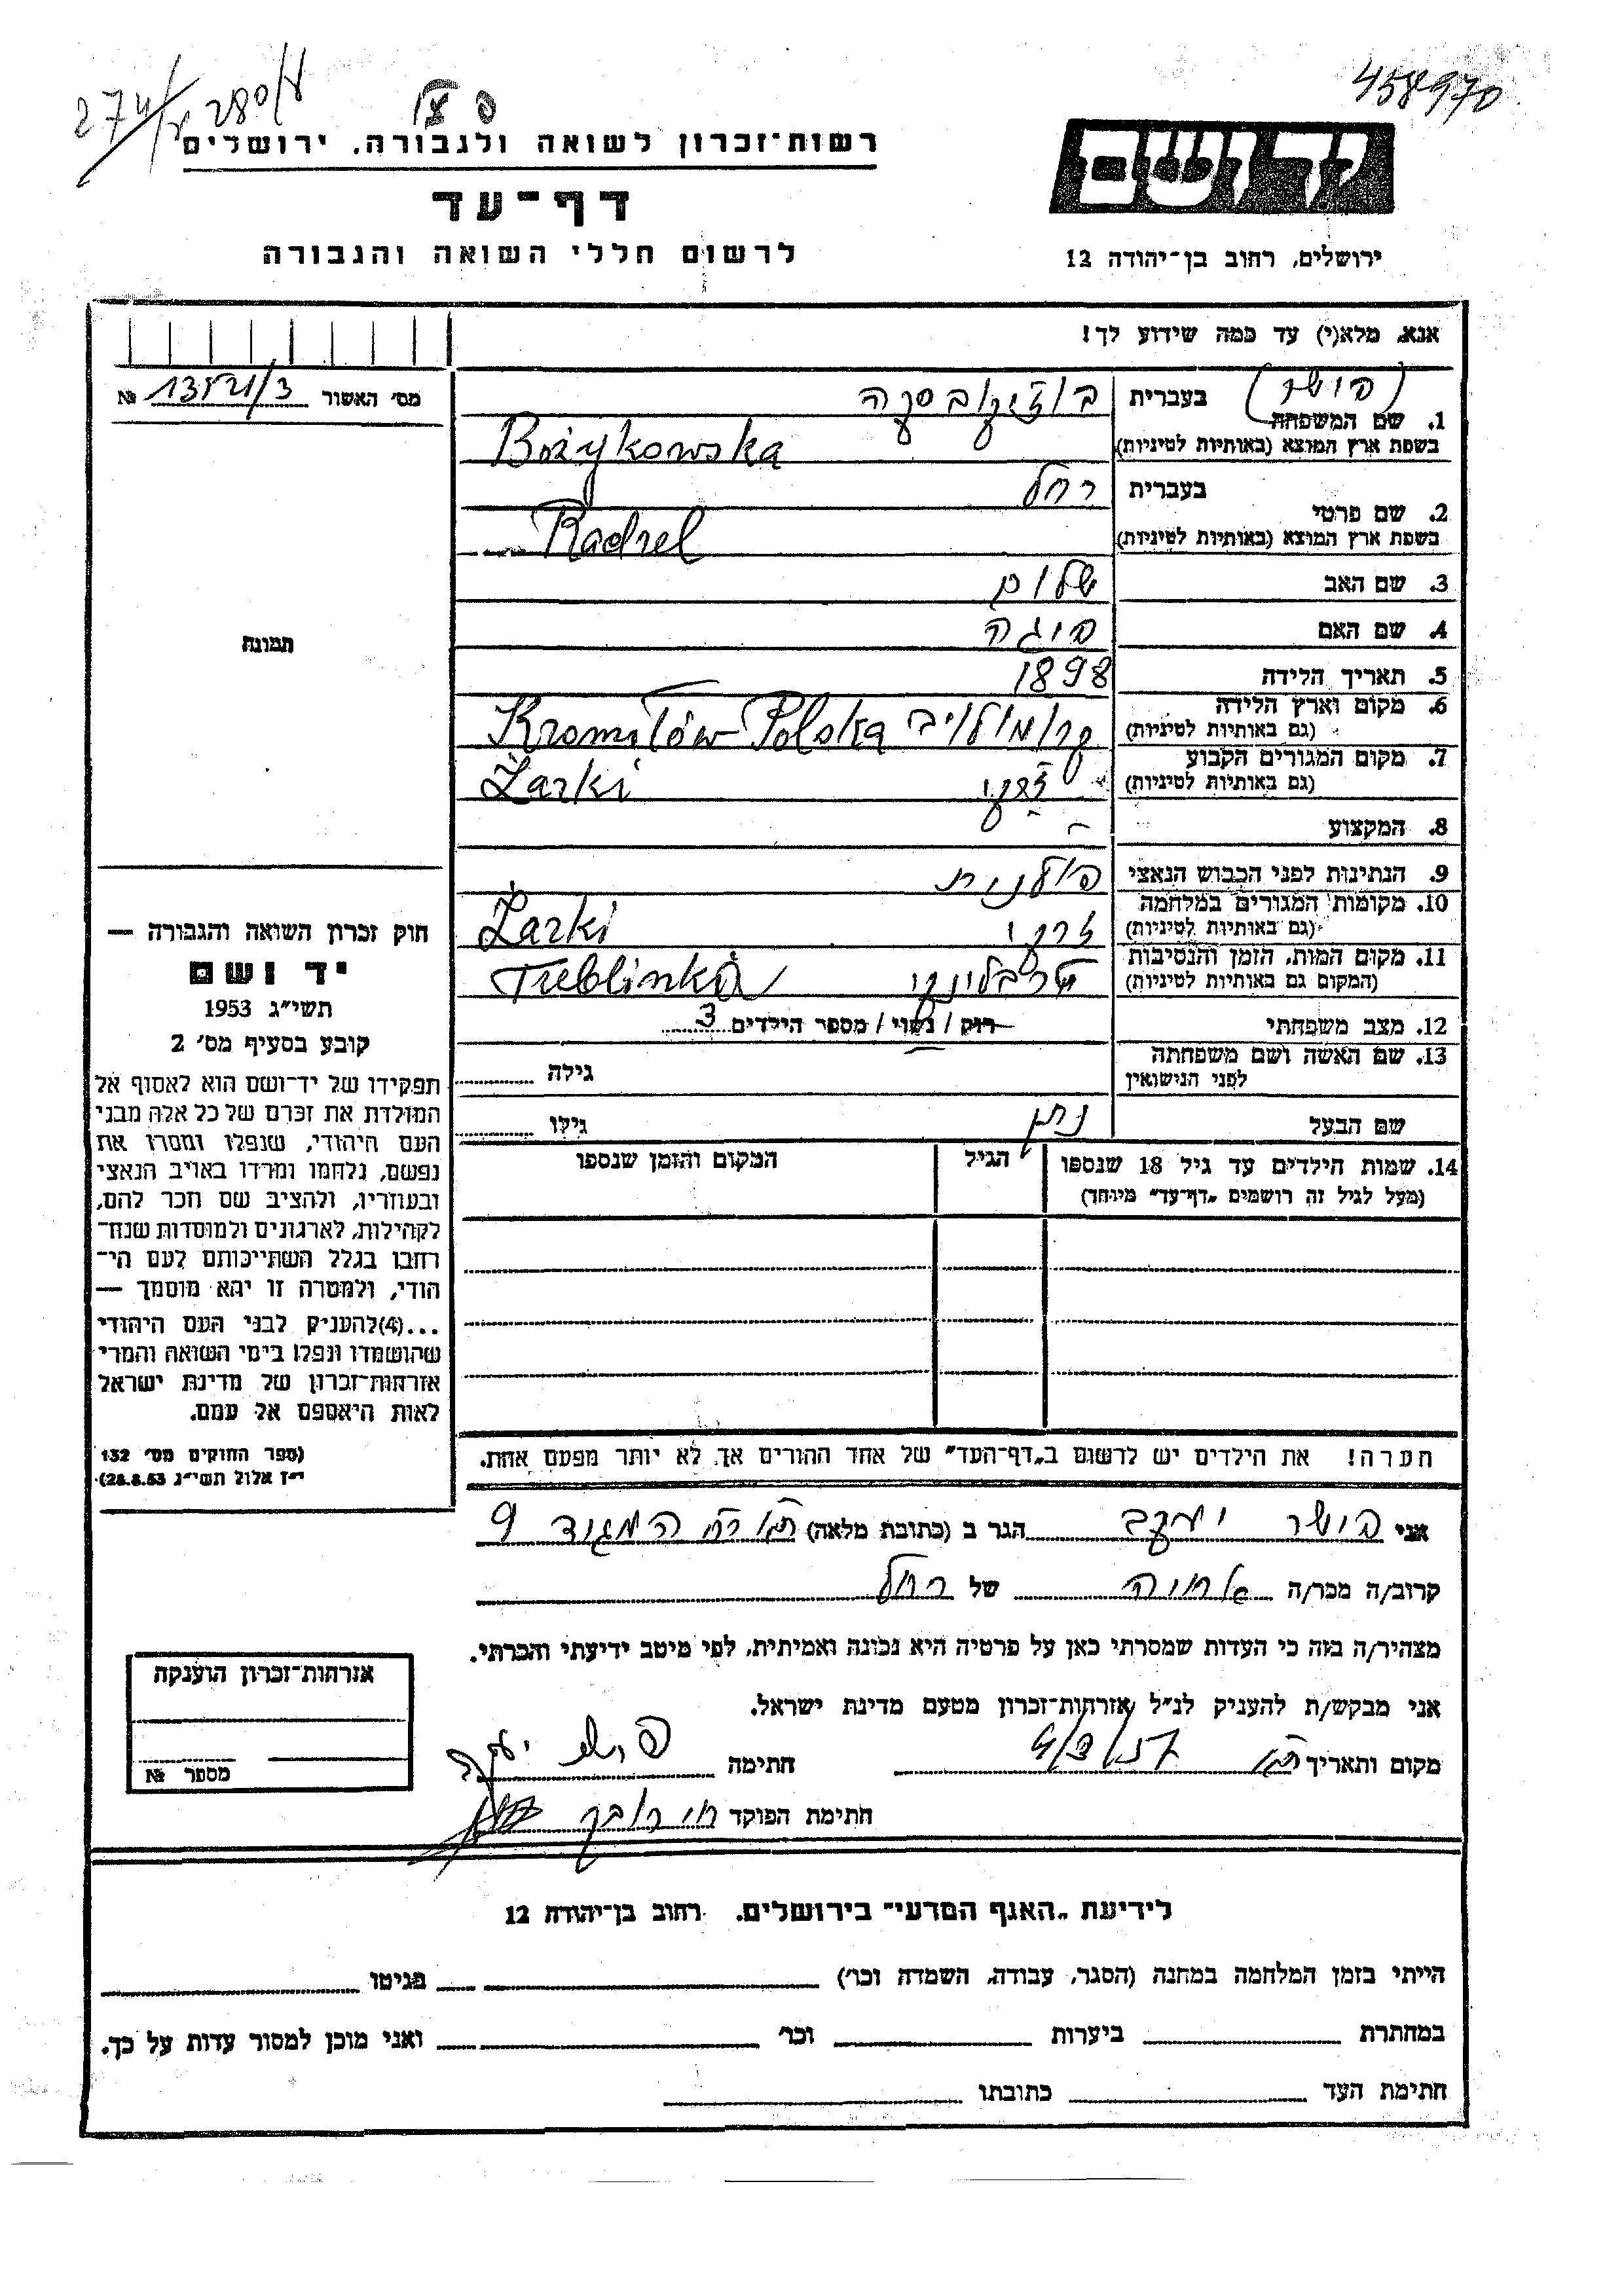 458970
274/ 280/
יד ושם
רשות־זכרון לשואה ולגבורה, ירושלים
דף־עד
לרשום חללי השואה והגבורה
ירושלים, רחוב בן־יהודה 12
אנא, מלא(י) עד כמה שידוע לך!
מס׳ האשור 13521/3 №
(פושר)
1. שם המשפחה בעברית בוז׳יקובסקה
בשפת ארץ המוצא (באותיות לטיניות) Bożykowska
2. שם פרטי בעברית רחל
בשפת ארץ המוצא (באותיות לטיניות) Rachel
3. שם האב שלום
4. שם האם פיגה
5. תאריך הלידה 1898
6. מקום וארץ הלידה (גם באותיות לטיניות) קרומולוב Kromołów Polska
7. מקום המגורים הקבוע (גם באותיות לטיניות) ז׳רקי Żarki
8. המקצוע -
9. הנתינות לפני הכבוש הנאצי פולנית
10. מקומות המגורים במלחמה (גם באותיות לטיניות) זרקי Żarki
11. מקום המות, הזמן והנסיבות (המקום גם באותיות לטיניות) טרבלינקי Treblinka
12. מצב משפחתי רוק / נשוי / מספר הילדים 3
13. שם האשה ושם משפחתה לפני הנישואין גילה
שם הבעל נתן גילו
14. שמות הילדים עד גיל 18 שנספו הגיל המקום והזמן שנספו
(מעל לגיל זה רושמים „דף־עד״ מיוחד)
הערה! את הילדים יש לרשום ב„דף־העד״ של אחד ההורים אך לא יותר מפעם אחת.
תמונה
חוק זכרון השואה והגבורה —
יד ושם
תשי״ג 1953
קובע בסעיף מס׳ 2
תפקידו של יד־ושם הוא לאסוף אל
המולדת את זכרם של כל אלה מבני
העם היהודי, שנפלו ומסרו את
נפשם, נלחמו ומרדו באויב הנאצי
ובעוזריו, ולהציב שם וזכר להם,
לקהילות, לארגונים ולמוסדות שנח־
רחבו בגלל השתייכותם לעם הי־
הודי, ולמטרה זו יהא מוסמך —
...(4)להעניק לבני העם היהודי
שהושמדו ונפלו בימי השואה והמרי
אזרחות־זכרון של מדינת ישראל
לאות היאספם אל עמם.
(ספר החוקים מס׳ 132
י״ז אלול תשי״ג 28.8.53)
אני פושר יעקב הגר ב (כתובת מלאה) 9
קרוב/ה מכר/ה אחיה של רחל
מצהיר/ה בזה כי העדות שמסרתי כאן על פרטיה היא נכונה ואמיתית, לפי מיטב ידיעתי והכרתי.
אני מבקש/ת להעניק לנ״ל אזרחות־זכרון מטעם מדינת ישראל.
מקום ותאריך חתימה
חתימת הפוקד
אזרחות־זכרון הוענקה
מספר №
לידיעת „האגף המדעי״ בירושלים, רחוב בן־יהודה 12
הייתי בזמן המלחמה במחנה (הסגר, עבודה, השמדה וכו׳) בגיטו
במחתרת ביערות וכו׳ ואני מוכן למסור עדות על כך.
חתימת העד כתובתו